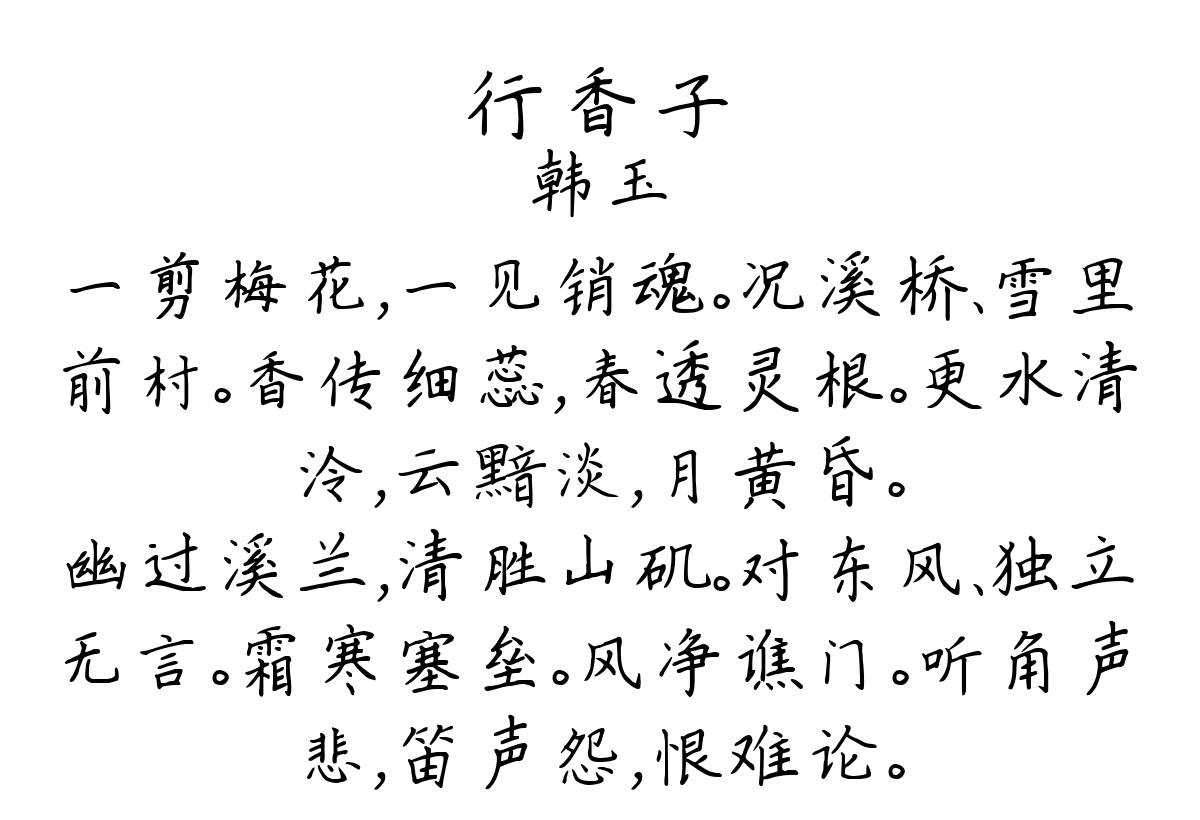 行香子
韩玉
一剪梅花,一见销魂。况溪桥、雪里
前村。香传细蕊,春透灵根。更水清
泠,云黯淡,月黄昏。
幽过溪兰,清胜山矾。对东风、独立
无言。霜寒塞垒。风净谯门。听角声
悲,笛声怨,恨难论。